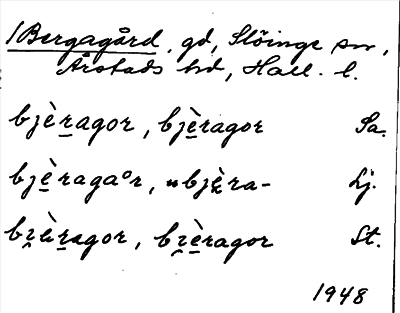 /Bergagård, gd, Slöinge sn,
Årstads hd, Hall. l.
bjè̱ṟagor, bjè̱ragor Sa.
bjè̱ragaᵒr, "bjè̱ra- Lj.
bṟagor, bè̱ragor St.
1948